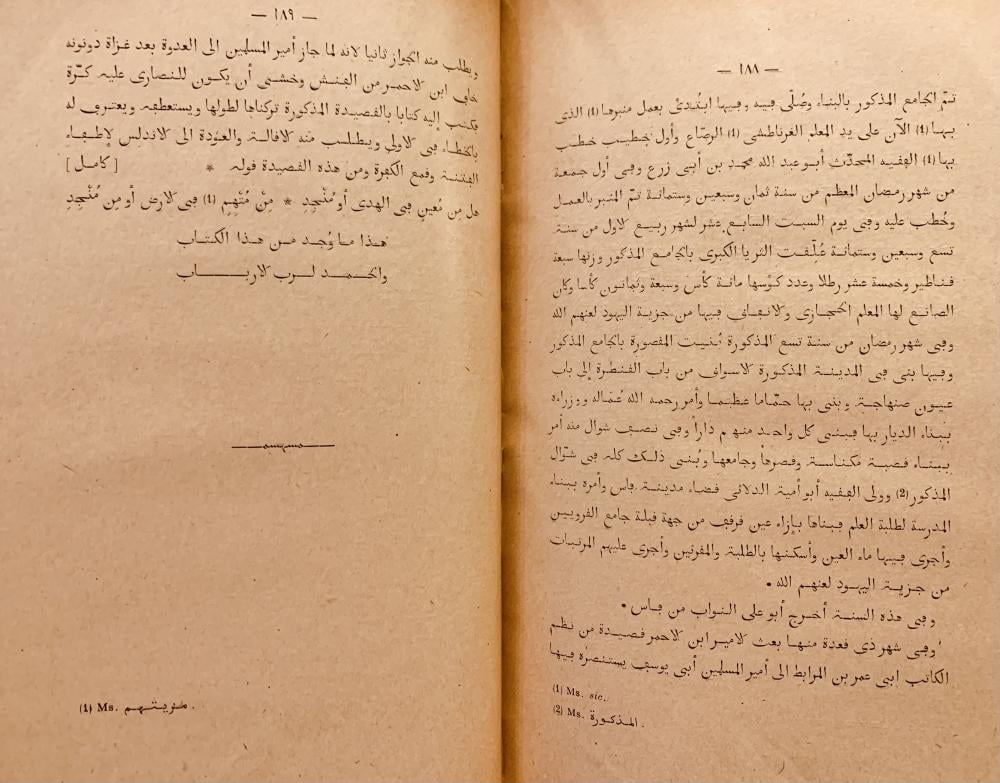 — ١٨٨ —
تمّ الجامع المذكور بالبناء وصُلّى فيه وفيها ابتُدئ بعمل منبرها (1) الذى
بها (1) الآن على يد المعلم الغرناطشى (1) الرصّاع وأول خطيب خطب
بها (1) الفقيه المحدّث أبو عبد الله محمد بن أبى زرع وفى أول جمعة
من شهر رمضان المعظم من سنة ثمان وسبعين وستمائة تمّ المنبر بالعمل
وخُطب عليه وفى يوم السبت السابع عشر لشهر ربيع الاول من سنة
تسع وسبعين وستمائة عُلّقت الثريا الكبرى بالجامع المذكور وزنها سبعة
قناطير وخمسة عشر رطلا وعدد كؤسها مائة كأس وسبعة وثمانون كأسا وكان
الصانع لها المعلم الحجازى والانفاق فيها من جزية اليهود لعنهم الله
وفى شهر رمضان من سنة تسع المذكورة بُنيت المقصورة بالجامع المذكور
وفيها بنى فى المدينة المذكورة الاسواق من باب القنطرة إلى باب
عيون صنهاجة وبنى بها حمّاما عظيما وأمر رحمه الله عُماله ووزراءه
ببناء الديار بها فبنى كل واحد منهم داراً وفى نصف شوال منه أمر
ببناء قصبة مكناسة وقصرها وجامعها وبُنى ذلك كله فى شوّال
المذكور (2) وولى الفقيه أبو أمية الدلائى قضاء مدينة فاس وأمره ببناء
المدرسة لطلبة العلم فبناها بإزاء عين قرقف من جهة قبلة جامع القرويين
وأجرى فيها ماء العين وأسكنها بالطلبة والمقرئين وأجرى عليهم المرتبات
من جزية اليهود لعنهم الله •
وفى هذه السنة أخرج أبو على النواب من فاس •
وفى شهر ذى قعدة منها بعث الامير ابن الاحمر قصيدة من نظم
الكاتب ابى عمر بن المرابط الى أمير المسلمين أبى يوسف يستنصره فيها
(1) Ms. sic.
(2) Ms. المذكورة.
— ١٨٩ —
ويطلب منه الجواز ثانيا لانه لما جاز أمير المسلمين الى العدوة بعد غزاة دونونه
خاف ابن الاحمر من الفنش وخشى أن يكون للنصارى عليه كرّة
فكتب إليه كتابا بالقصيدة المذكورة تركناها لطولها ويستعطفه ويعترف له
بالخطاء فى الاولى ويطلب منه الاقالة والعودة الى الاندلس لإطفاء
الفتنة وقمع الكفرة ومن هذه القصيدة قوله * [ كامل ]
هل مِن مُعينٍ فى الهدى أو مُنْجِدِ * مِنْ مُتْهِمٍ (1) فى الارض أو مِن مُنْجِدِ
هذا ما وُجد من هذا الكتاب
والحمد لرب الارباب
(1) Ms.